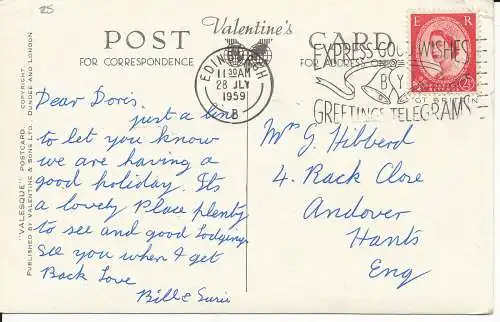 25
Valentine's
POST CARD
FOR CORRESPONDENCE
FOR ADDRESS ONLY
EDINBURGH
11 30AM
28 JLY
1959
B
EXPRESS GOOD WISHES
BY
GREETINGS TELEGRAMS
E R
"VALESQUE" POSTCARD. COPYRIGHT.
PUBLISHED BY VALENTINE & SONS LTD. DUNDEE AND LONDON
Dear Doris.
just a line
to let you know
we are having a
good holiday. Its
a lovely Place plenty
to see and good Lodging
see you when I get
Back Love
Bill &
Mrs G. Hibberd
4. Rack Close
Andover
Hants
Eng